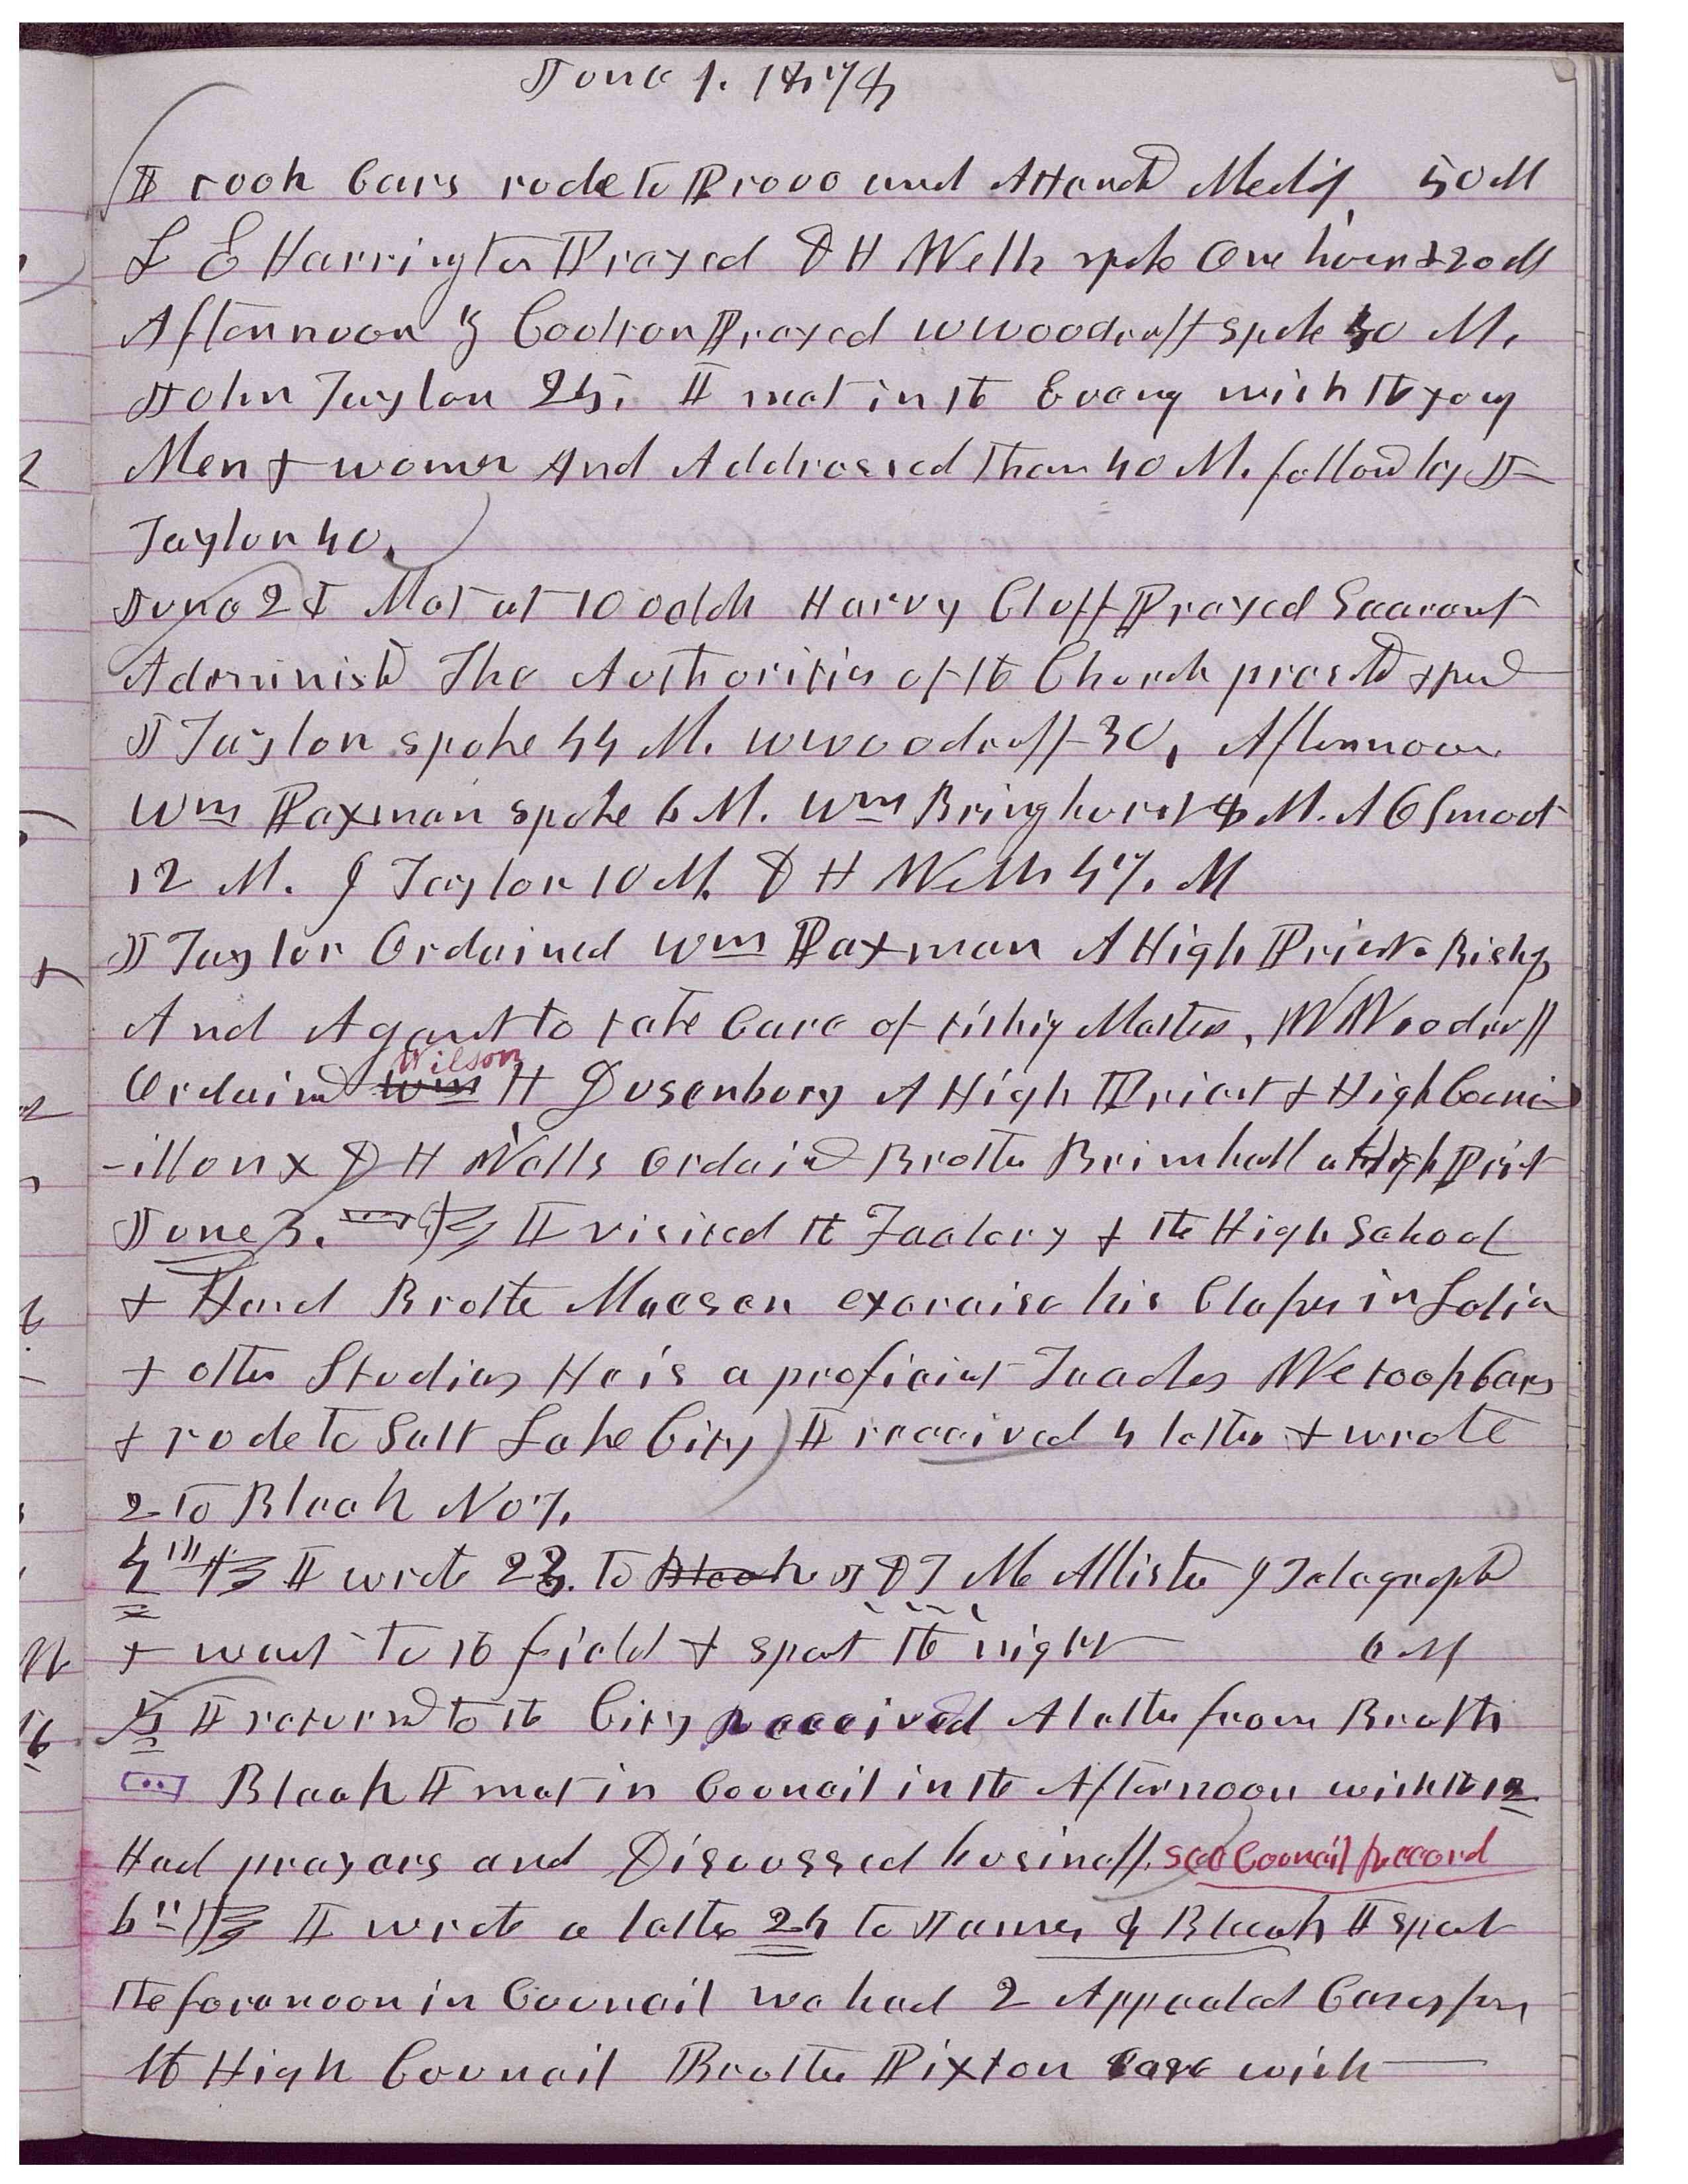 June 1. 1878
I took Cars rode to Provo and Attend Meetig 50 M
L E Harrington Prayed D H Wells spoke One hour & 20 M
Afternoon G Coolson Prayed W Woodruff spoke 50 M.
John Taylor 25. I met in the Eveng with the yong
Men & women And Addressed them 40 M. followd by J
Taylor 40.
June 2 I Met at 10 oclok Harvy Cluff Prayed Sacramt
Administd The Authorities of the Church presetd &
J Taylor spoke 44 M. W Woodruff 30, Afternoon
Wm Paxman spoke 6 M. Wm Bringhurst 8 M. A O Smoot
12 M. J Taylor 10 M. D H Wells 47. M
J Taylor Ordained Wm Paxman A High Priest & Bishop
And Agent to take Care of tithig Matters, W Woodruff
Ordaind Wm Wilson H Dusenbery A High Priest & High Counc
-illor & D H Wells ordaind Brother Brimhall a High Priest
June 3. I visited the Factory & the High School
& Herd Brother Maeser exercise his Class in Latin
& other Studies He is a proficint Teacher We took Cars
& rode to Salt Lake City I received 4 letters & wrote
2 to Bleak No 7.
4 I wrote 23. to Bleak & D T McAllister & Telegraphd
& went to the field & spent the night 6 M
5 I returnd to the City received A letter from Brother
Bleak I met in Council in the Afternoon with the 12
Had prayers and Discussed business, see Council Record
6 I wrote a letter 24 to James G Bleak I spent
the forenoon in Council we had 2 Appealed Cases from
the High Council Brother Pixton Case with